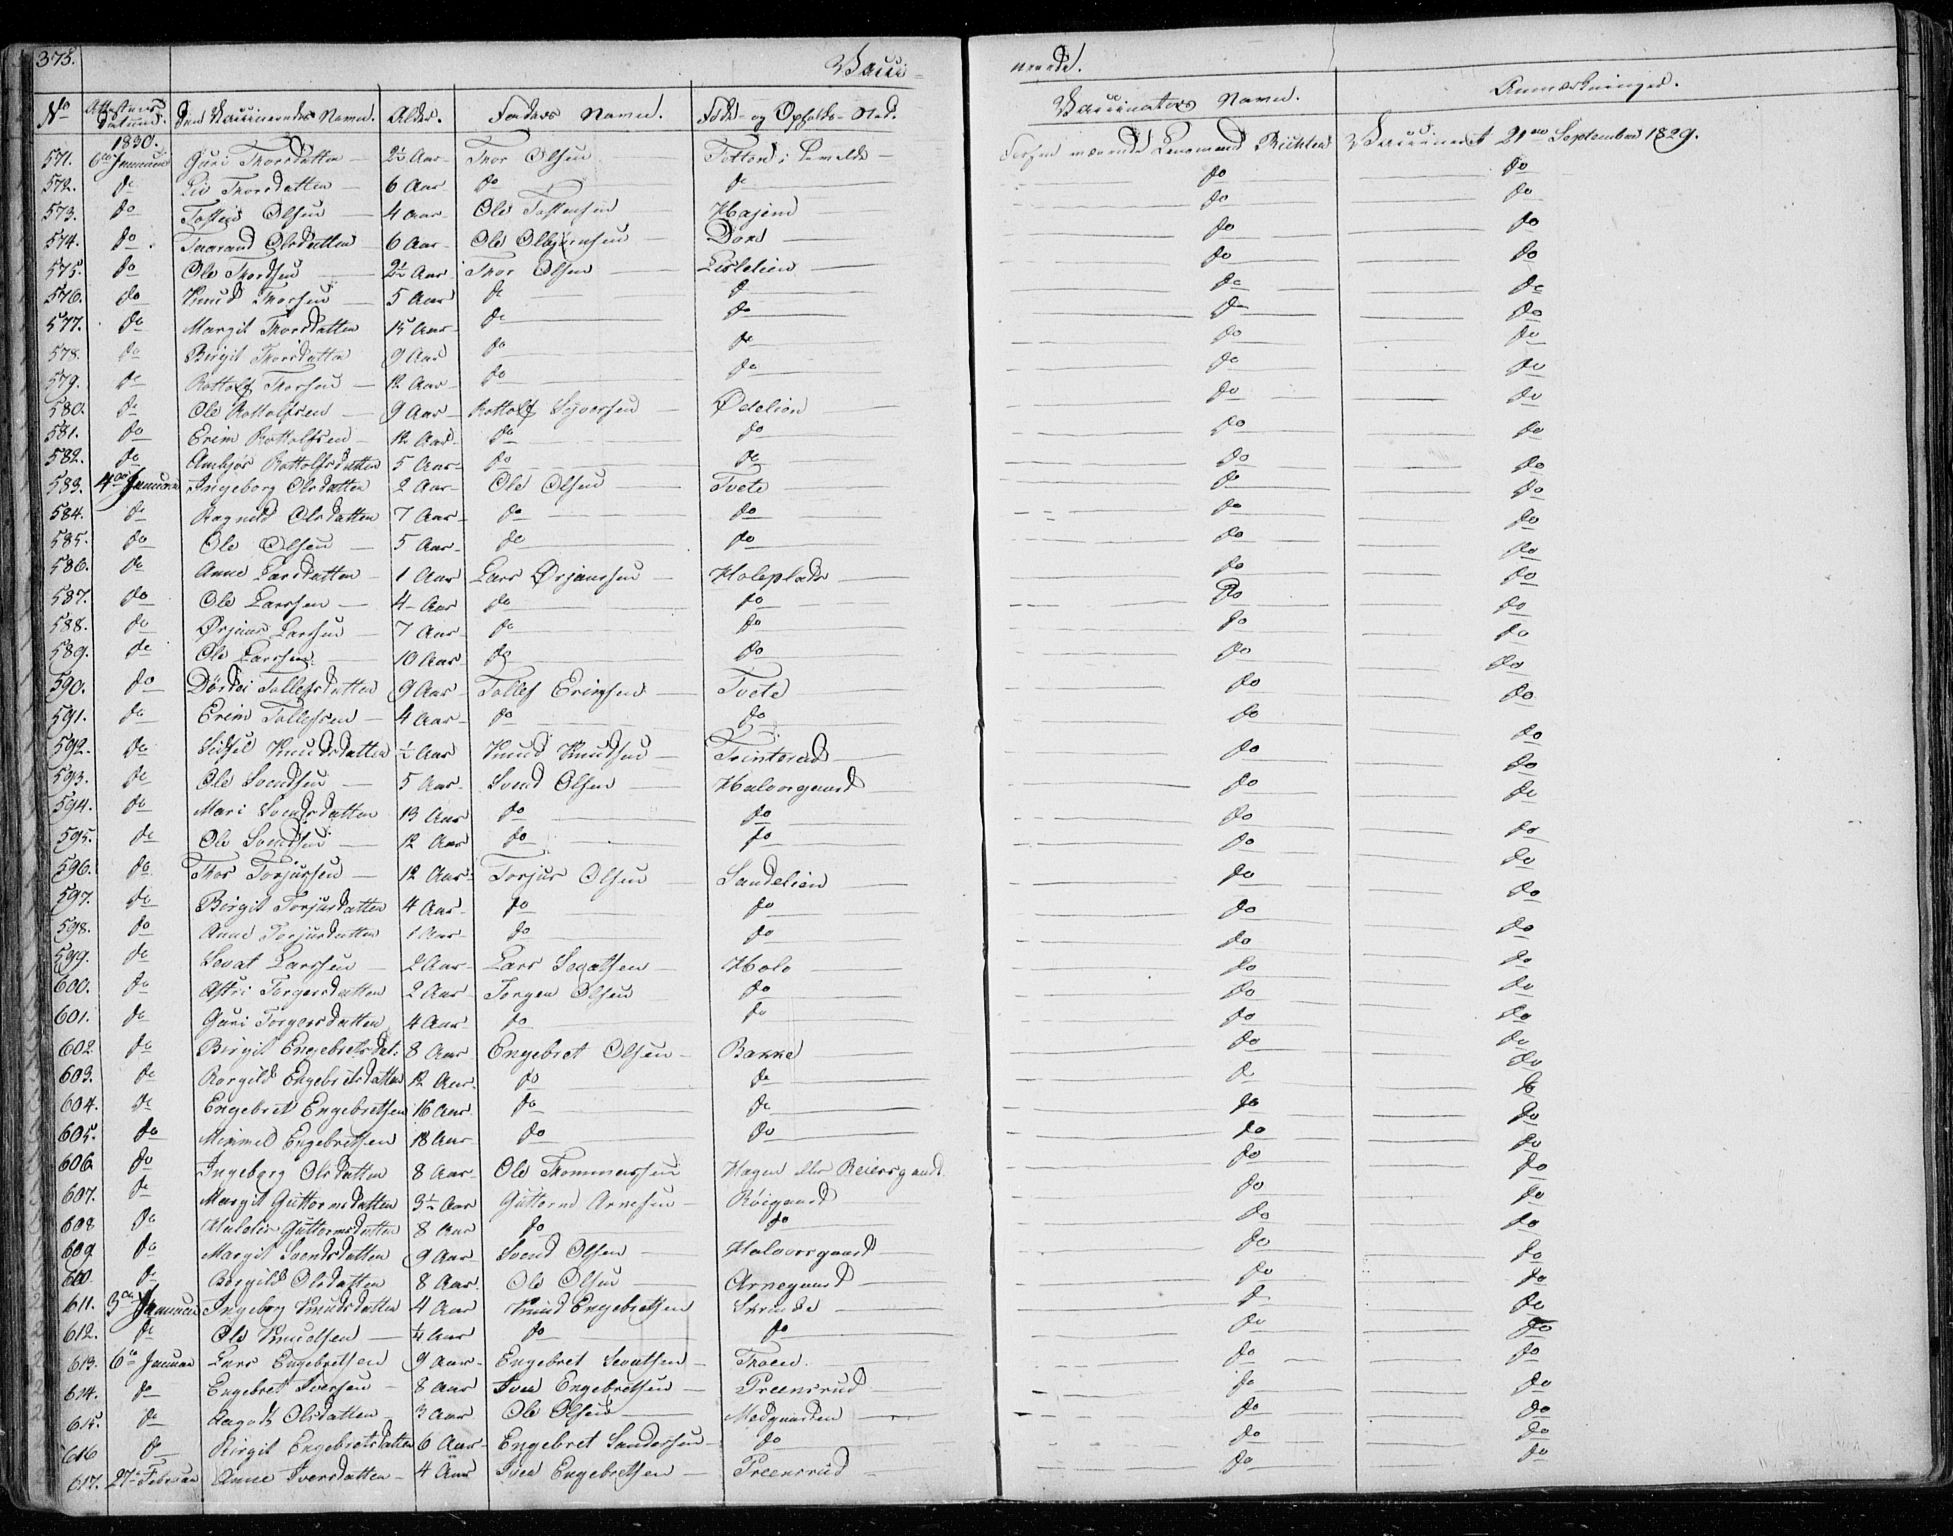 375.
Vacci- neerde.
No Attestens Datum. Den Vaccineerdes Navn. Alder. Faders Navn. Føde- og Opholds-Sted. Vaccinateurs Navn. Anmærkninger.
1830.
571. 6te Januar Guri Thorsdatten 2½ Aar Thor Olsen i Forhen værende Lensmand Vaccineret 21de September 1829.
572. do Liv Thorsdatten 6 Aar do do do do
573. do Tosten Olsen 4 Aar Ole Tostensen Hagen do do
574. do Olsdatten 6 Aar Ole Olbjørnsen do do
575. do Ole Thordsen 2½ Aar Thor Olsen do do
576. do Knud Thorsen 5 Aar do do do do
577. do Margit Thorsdatten 15 Aar do do do do
578. do Birgit Thorsdatten 9 Aar do do do do
579. do Rottolf Thorsen 12 Aar do do do do
580. do Ole Rottolfsen 9 Aar Rottolf Syversen Ødelien do do
581. do Erim Rottolfsen 12 Aar do do do do
582. do Ambjør Rottolfsdatten 5 Aar do do do do
583. 4de Januar Ingeborg Olsdatten 2 Aar Ole Olsen Tvete do do
584. do Ragnild Olsdatten 7 Aar do do do do
585. do Ole Olsen 5 Aar do do do do
586. do Anne Larsdatten 1 Aar Lars Ørjansen Holeplads do do
587. do Ole Larssen 4 Aar do do do do
588. do Ørjans Larssen 7 Aar do do do do
589. do Ole Larssen 10 Aar do do do do
590. do Dördei Tollefsdatten 9 Aar Tollef Erimsen Tvete do do
591. do Erim Tollefsen 4 Aar do do do do
592. do Sidsel Knudsdatten ½ Aar Knud Knudsen Trinterud do do
593. do Ole Svendsen 5 Aar Svend Olsen Halvorgaard do do
594. do Mari Svendsdatten 13 Aar do do do do
595. do Ole Svendsen 12 Aar do do do do
596. do Thor Torjursen 12 Aar Torjur Olsen Sandelien do do
597. do Birgit Torjursdatten 4 Aar do do do do
598. do Anne Torjusdatten 1 Aar do do do do
599. do Sevat Larssen 2 Aar Lars Sevatsen Hole do do
600. do Astri Torgersdatten 2 Aar Torgen Olsen do do do
601. do Guri Torgersdatten 4 Aar do do do do
602. do Birgit Engebretsdat: 8 Aar Engebret Olsen Bakke do do
603. do Borgild Engebretsdatten 12 Aar do do do do
604. do Engebret Engebretsen 16 Aar do do do do
605. do Mimmel Engebretsen 18 Aar do do do do
606 do Ingeborg Olsdatten 8 Aar Ole Thommessen Hagen eller Reiersgaard do do
607. do Margit Guttormsdatten 3½ Aar Guttorm Arnesen Röigaard do do
608 do Guttormsdatten 8 Aar do do do do
609 do Margit Svendsdatten 9 Aar Svend Olsen Halvorsgaard do do
600 do Borgild Olsdatten 8 Aar Ole Olsen Arnegaard do do
611. 3die Januar Ingeborg Knudsdatten 4 Aar Knud Engebretsen Skrinde do do
612. do Ole Knudsen ¼ Aar do do do do
613. 6te Januar Lars Engebretsen 9 Aar Engebret Sevatsen Thoen. do do
614. do Engebret Iversen 8 Aar Iver Engebretsen Preensrud do do
615. do Aagodt Olsdatten 3 Aar Ole Olsen Medgaarden do do
616 do Birgit Engebretsdatten 6 Aar Engebret Sandersen do do do
617. 27de Februar Anne Iversdatten 4 Aar Iver Engebretsen Preensrud do do